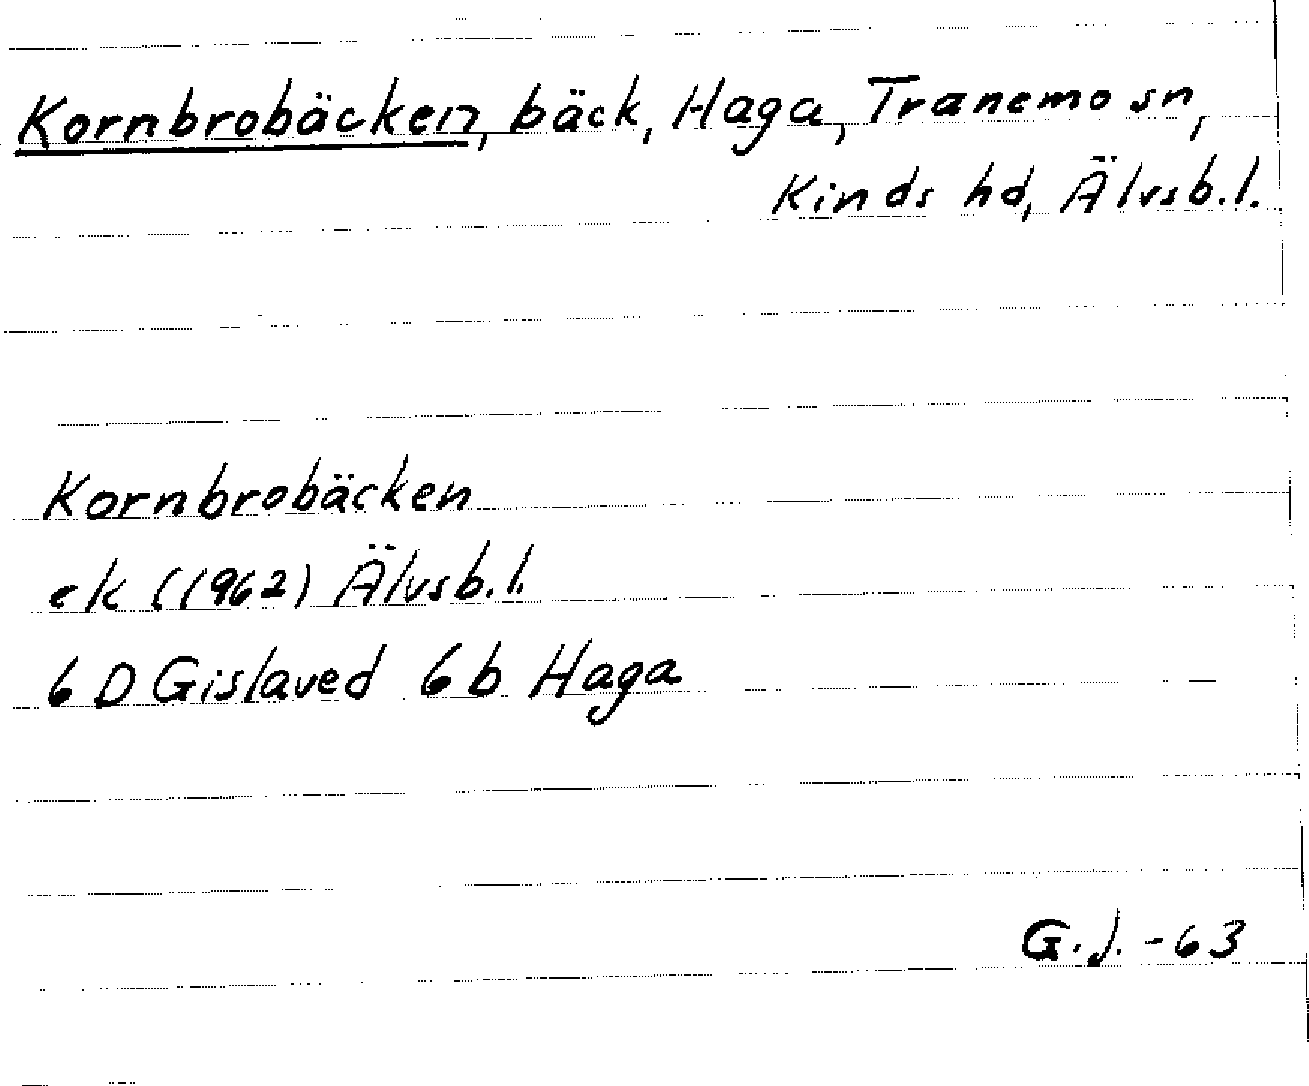 Kornbrobäcken, bäck, Haga, Tranemo sn,
Kinds hd, Älvsb.l.
Kornbrobäcken
ek (1962) Älvsb.l.
6 D Gislaved 6b Haga
G.J. -63